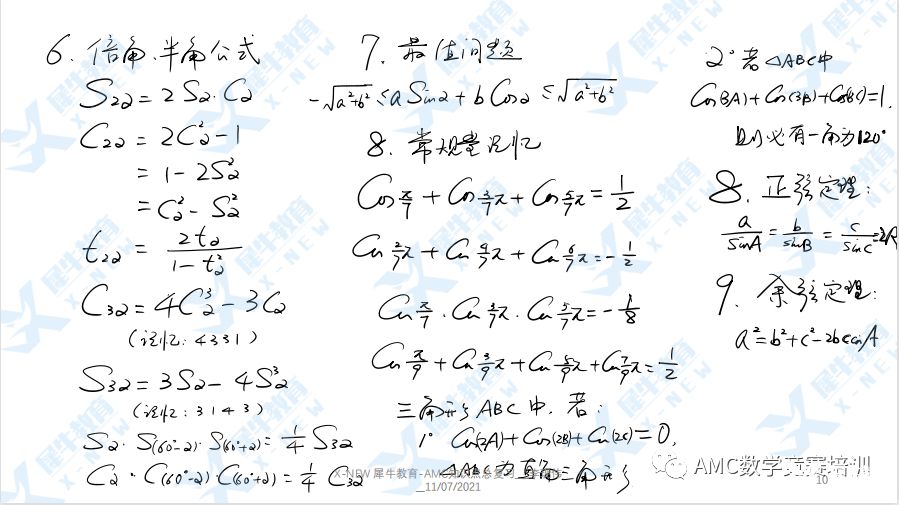 6. 倍角、半角公式
S2α = 2Sα·Cα
C2α = 2Cα² - 1
= 1 - 2Sα²
= Cα² - Sα²
t2α = 2tα / (1 - tα²)
C3α = 4Cα³ - 3Cα
(记忆: 4331)
S3α = 3Sα - 4Sα³
(记忆: 3143)
Sα·S(60°-α)·S(60°+α) = 1/4 S3α
Cα·C(60°-α)·C(60°+α) = 1/4 C3α
7. 最值问题
-√(a²+b²) ≤ a Sinα + b Cosα ≤ √(a²+b²)
8. 常规量记忆
Cos π/7 + Cos 3/7π + Cos 5/7π = 1/2
Cos 2/7π + Cos 4/7π + Cos 6/7π = -1/2
Cos π/7 · Cos 3/7π · Cos 5/7π = -1/8
Cos π/9 + Cos 3/9π + Cos 5/9π + Cos 7/9π = 1/2
三角形ABC中, 若:
1° Cos(2A) + Cos(2B) + Cos(2C) = 0,
△ABC为直角三角形
2° 若△ABC中
Cos(3A) + Cos(3B) + Cos(3C) = 1,
则必有一角为120°
8. 正弦定理:
a/sinA = b/sinB = c/sinC = 2R
9. 余弦定理:
a² = b² + c² - 2bccosA
X-NEW 犀牛教育-AMC
_11/07/2021
10
AMC数学竞赛培训
犀牛教育
X-NEW